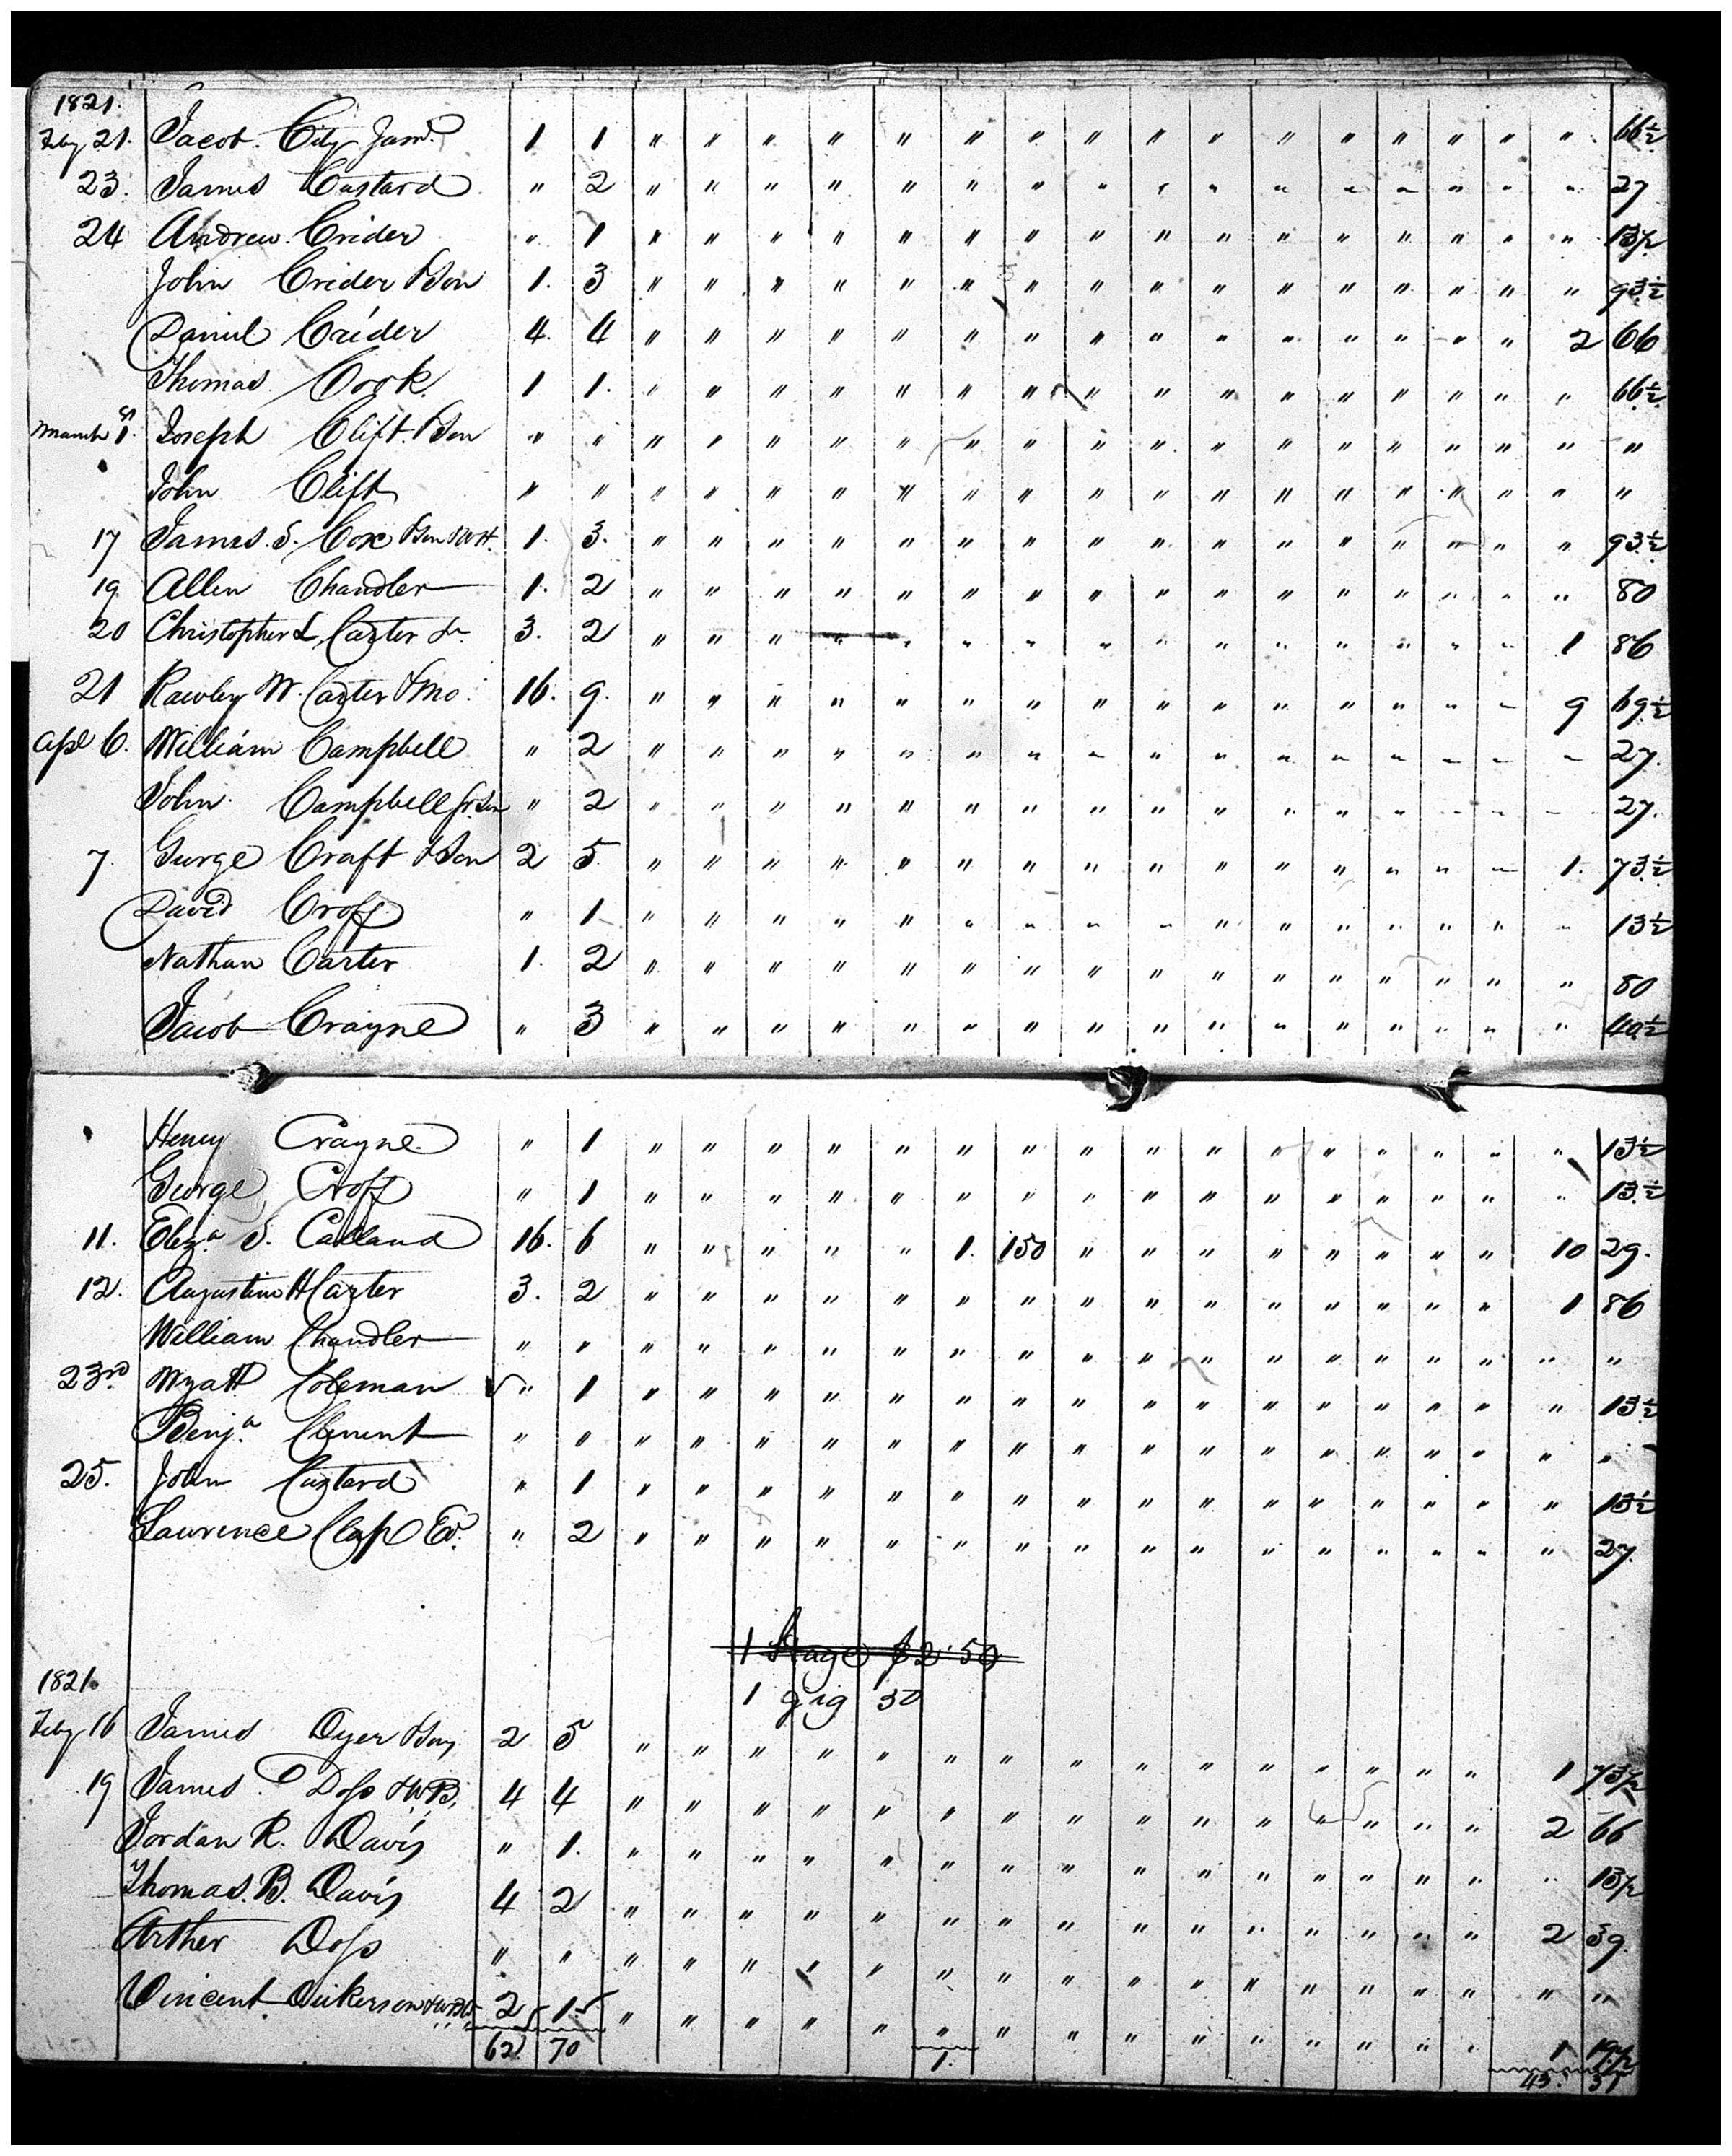 1821.
Feby 21. Jacob City Junr. 1 1 " " " " " " " " " " " " " " " " 66½
23. James Custard " 2 " " " " " " " " " " " " " " " " 27
24 Andrew Crider " 1 " " " " " " " " " " " " " " " " 13½
John Crider & Son 1. 3 " " " " " " " " " " " " " " " " 93½
Daniel Crider 4. 4 " " " " " " " " " " " " " " " 2 66
Thomas Cook 1 1. " " " " " " " " " " " " " " " " 66½
March 1st. Joseph Clift & Son " " " " " " " " " " " " " " " " " " "
John Clift " " " " " " " " " " " " " " " " " " "
17 James S. Cox & Son & WH. 1. 3. " " " " " " " " " " " " " " " " 93½
19 Allen Chandler 1. 2 " " " " " " " " " " " " " " " " 80
20 Christopher L Carter Jr 3. 2 " " " " " " " " " " " " " " " 1 86
21 Rawley W. Carter & Mo. 16. 9. " " " " " " " " " " " " " " " 9 69½
Apl 6. William Campbell " 2 " " " " " " " " " " " " " " " " 27.
John Campbell Jr. Son " 2 " " " " " " " " " " " " " " " " 27.
7. George Craft & Son 2 5 " " " " " " " " " " " " " " " 1. 73½
David Croff " 1 " " " " " " " " " " " " " " " " 13½
Nathan Carter 1. 2 " " " " " " " " " " " " " " " " 80
Jacob Crayne " 3 " " " " " " " " " " " " " " " " 40½
Henry Crayne. " 1 " " " " " " " " " " " " " " " " 13½
George Croff " 1 " " " " " " " " " " " " " " " " 13½
11. Eliza S. Calland 16. 6 " " " " " 1. 150 " " " " " " " " 10 29.
12. Augustine H Carter 3. 2 " " " " " " " " " " " " " " " 1 86
William Chandler " " " " " " " " " " " " " " " " " " "
23rd Wyatt Coleman " 1 " " " " " " " " " " " " " " " " 13½
Benja Clement " " " " " " " " " " " " " " " " " " "
25. John Custard " 1 " " " " " " " " " " " " " " " " 13½
Lawrence Clap Ed. " 2 " " " " " " " " " " " " " " " " 27.
1 Stage $2.50
1 gig 30
1821.
Feby 16 James Dyer & Son 2 5 " " " " " " " " " " " " " " " 1 73½
19 James Doss & WB. 4 4 " " " " " " " " " " " " " " " 2 66
Jordan R. Davis " 1. " " " " " " " " " " " " " " " " 13½
Thomas. B. Davis 4 2 " " " " " " " " " " " " " " " 2 39.
Arther Doss " " " " " " " " " " " " " " " " " " "
Vincent Dickerson 2 1 " " " " " " " " " " " " " " " 1 19½
62 70 1. 43. 37